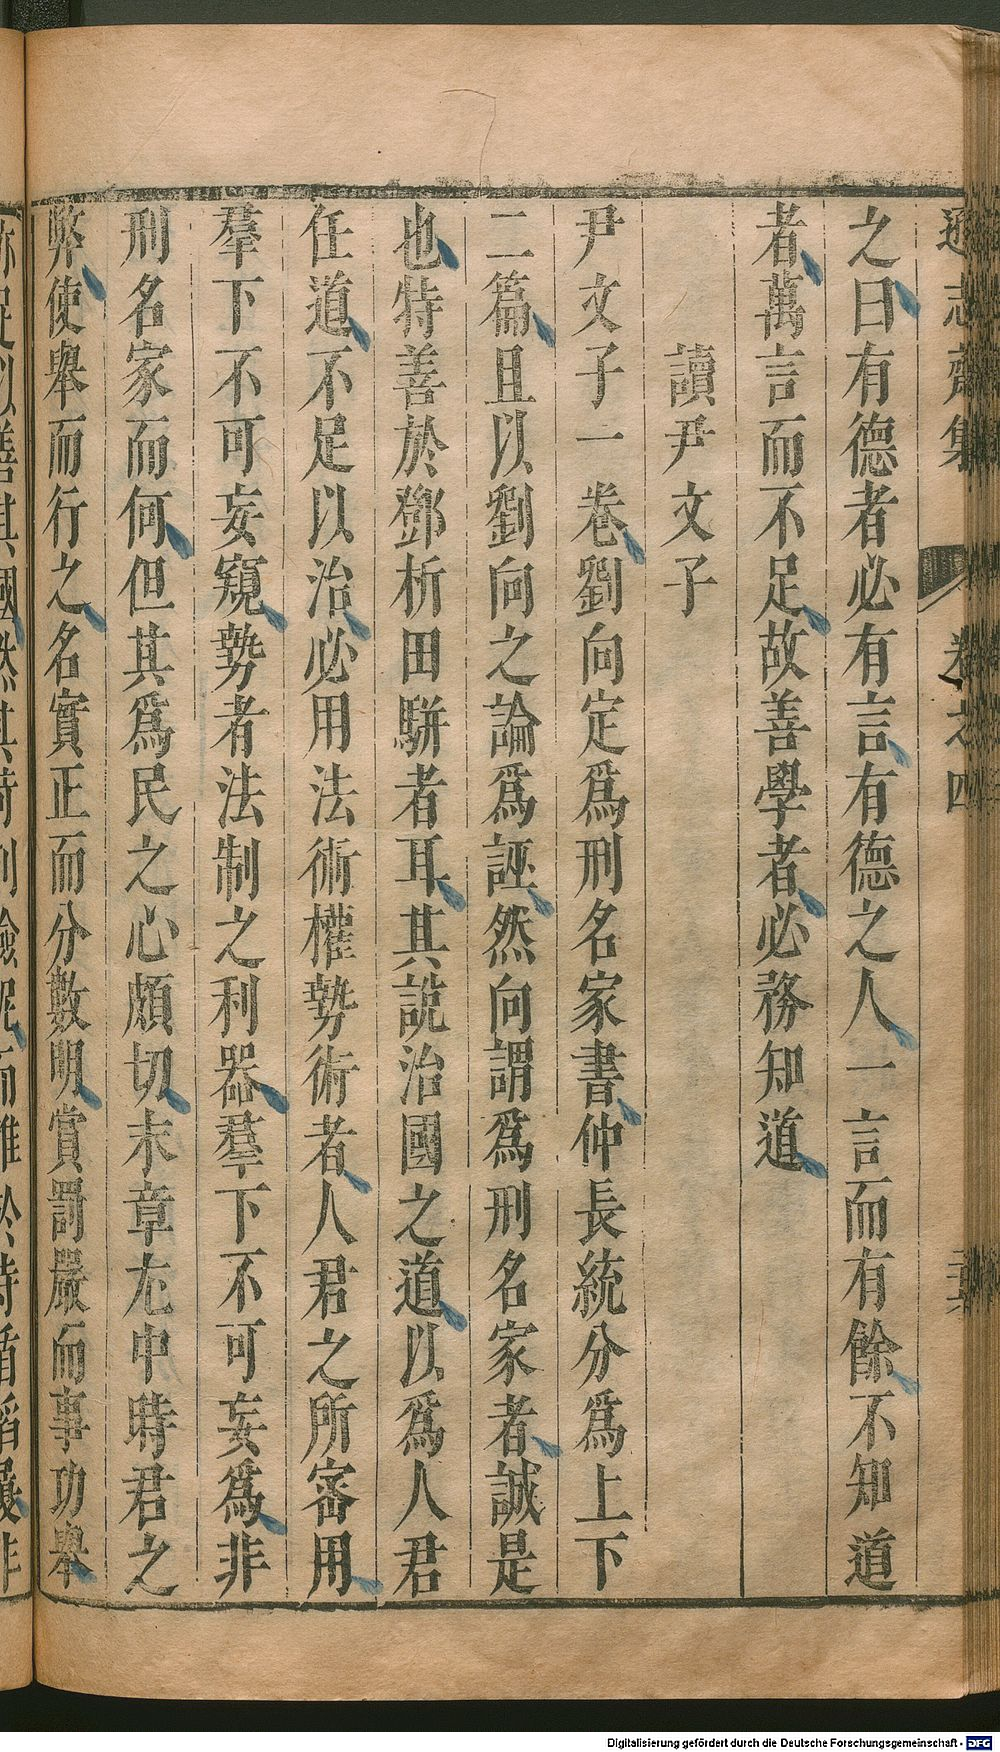 遜志齋集 卷之四
之曰有德者必有言有德之人一言而有餘不知道
者萬言而不足故善學者必務知道
讀尹文子
尹文子一卷劉向定爲刑名家書仲長統分爲上下
二篇且以劉向之論爲誣然向謂爲刑名家者誠是
也特善於鄧析田駢者耳其說治國之道以爲人君
任道不足以治必用法術權勢術者人君之所密用
羣下不可妄窺勢者法制之利器羣下不可妄爲非
刑名家而何但其爲民之心頗切末章尤中時君之
弊使舉而行之名實正而分數明賞罰嚴而事功舉
Digitalisierung gefördert durch die Deutsche Forschungsgemeinschaft - DFG